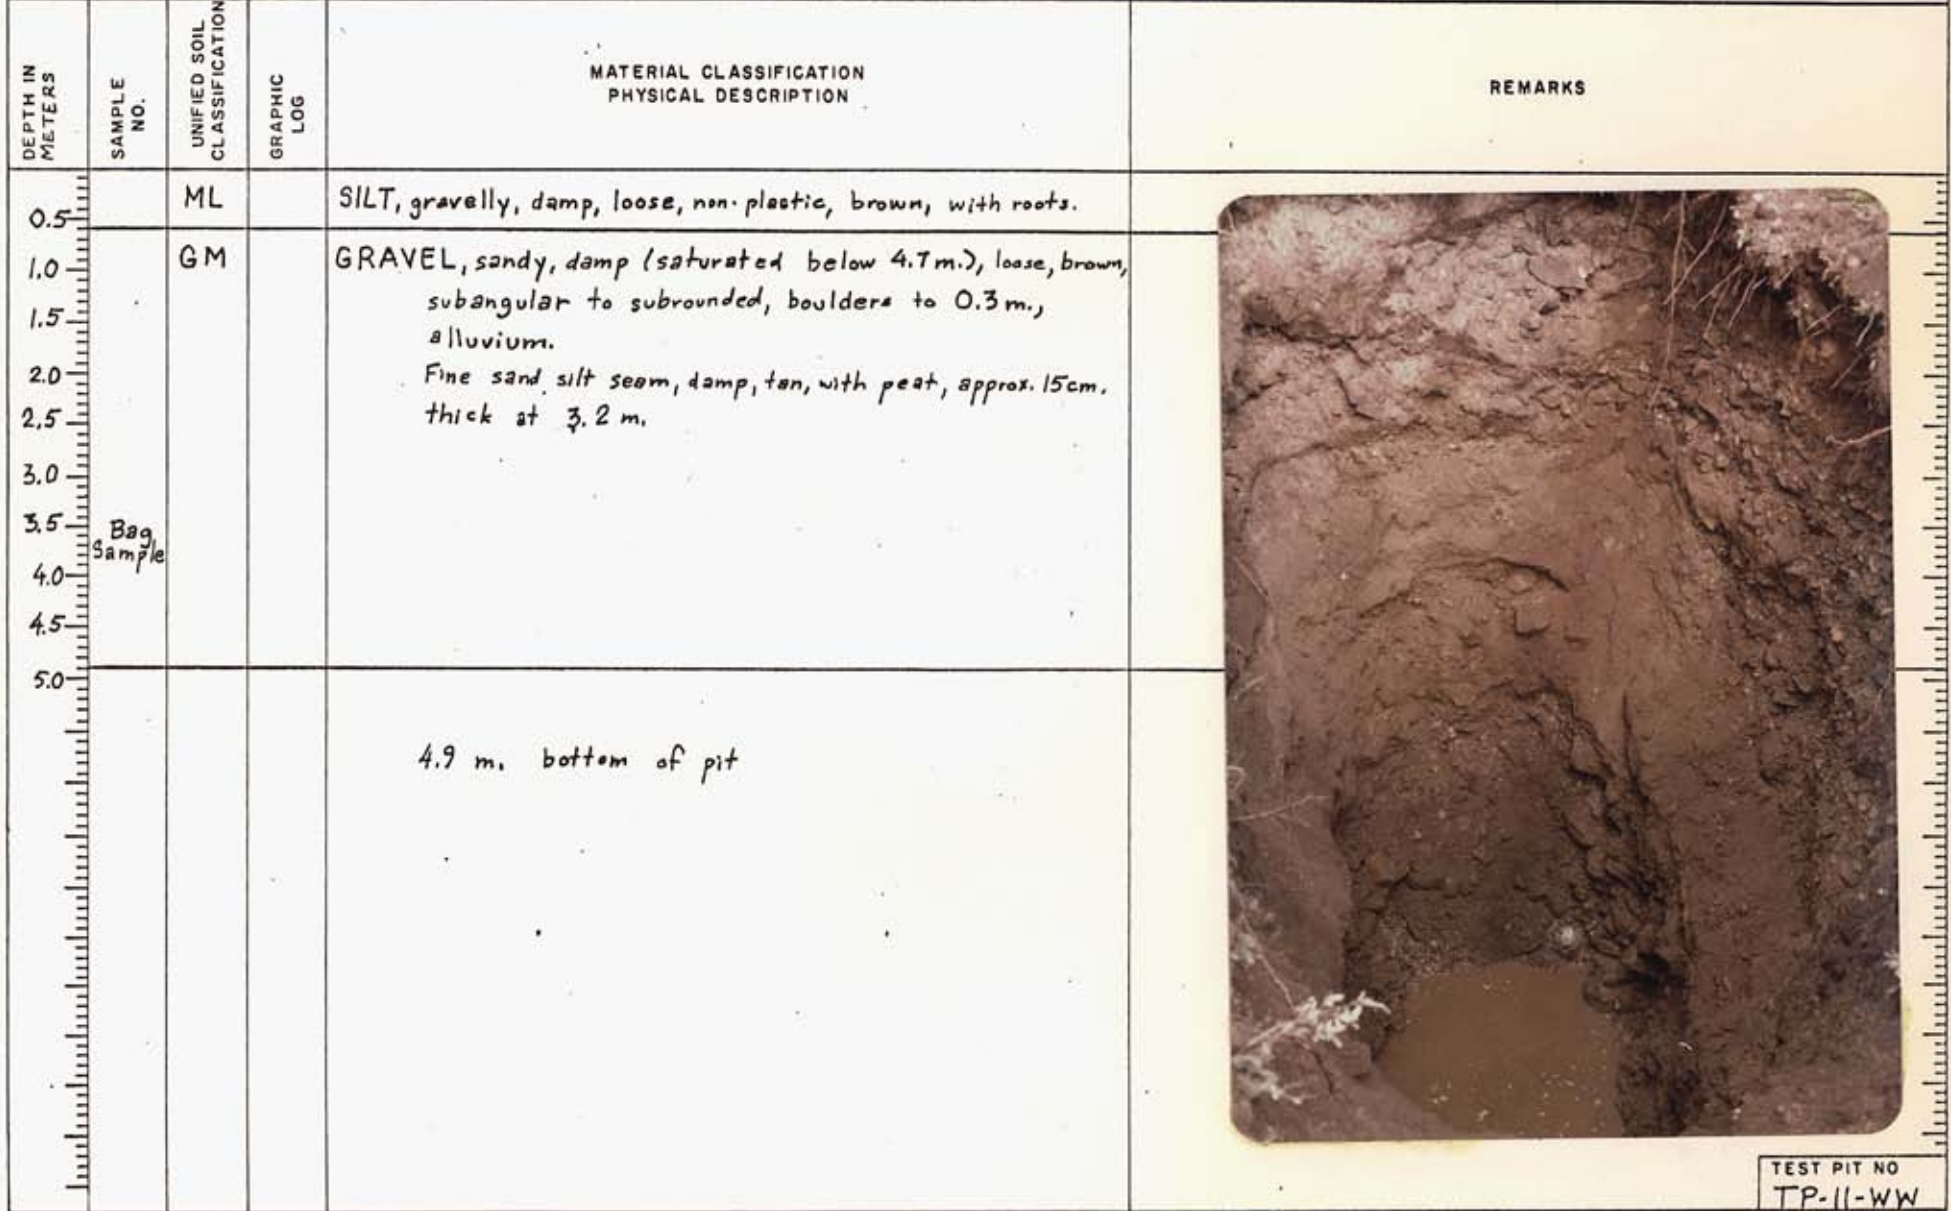 DEPTH IN
METERS
SAMPLE
NO.
UNIFIED SOIL
CLASSIFICATION
GRAPHIC
LOG
MATERIAL CLASSIFICATION
PHYSICAL DESCRIPTION
REMARKS
0.5
ML
SILT, gravelly, damp, loose, non-plastic, brown, with roots.
1.0
GM
GRAVEL, sandy, damp (saturated below 4.7m.), loose, brown,
1.5
subangular to subrounded, boulders to 0.3 m.,
alluvium.
2.0
Fine sand silt seam, damp, tan, with peat, approx. 15cm.
2.5
thick at 3.2 m.
3.0
3.5
Bag
Sample
4.0
4.5
5.0
4.9 m. bottom of pit
TEST PIT NO
TP-11-WW